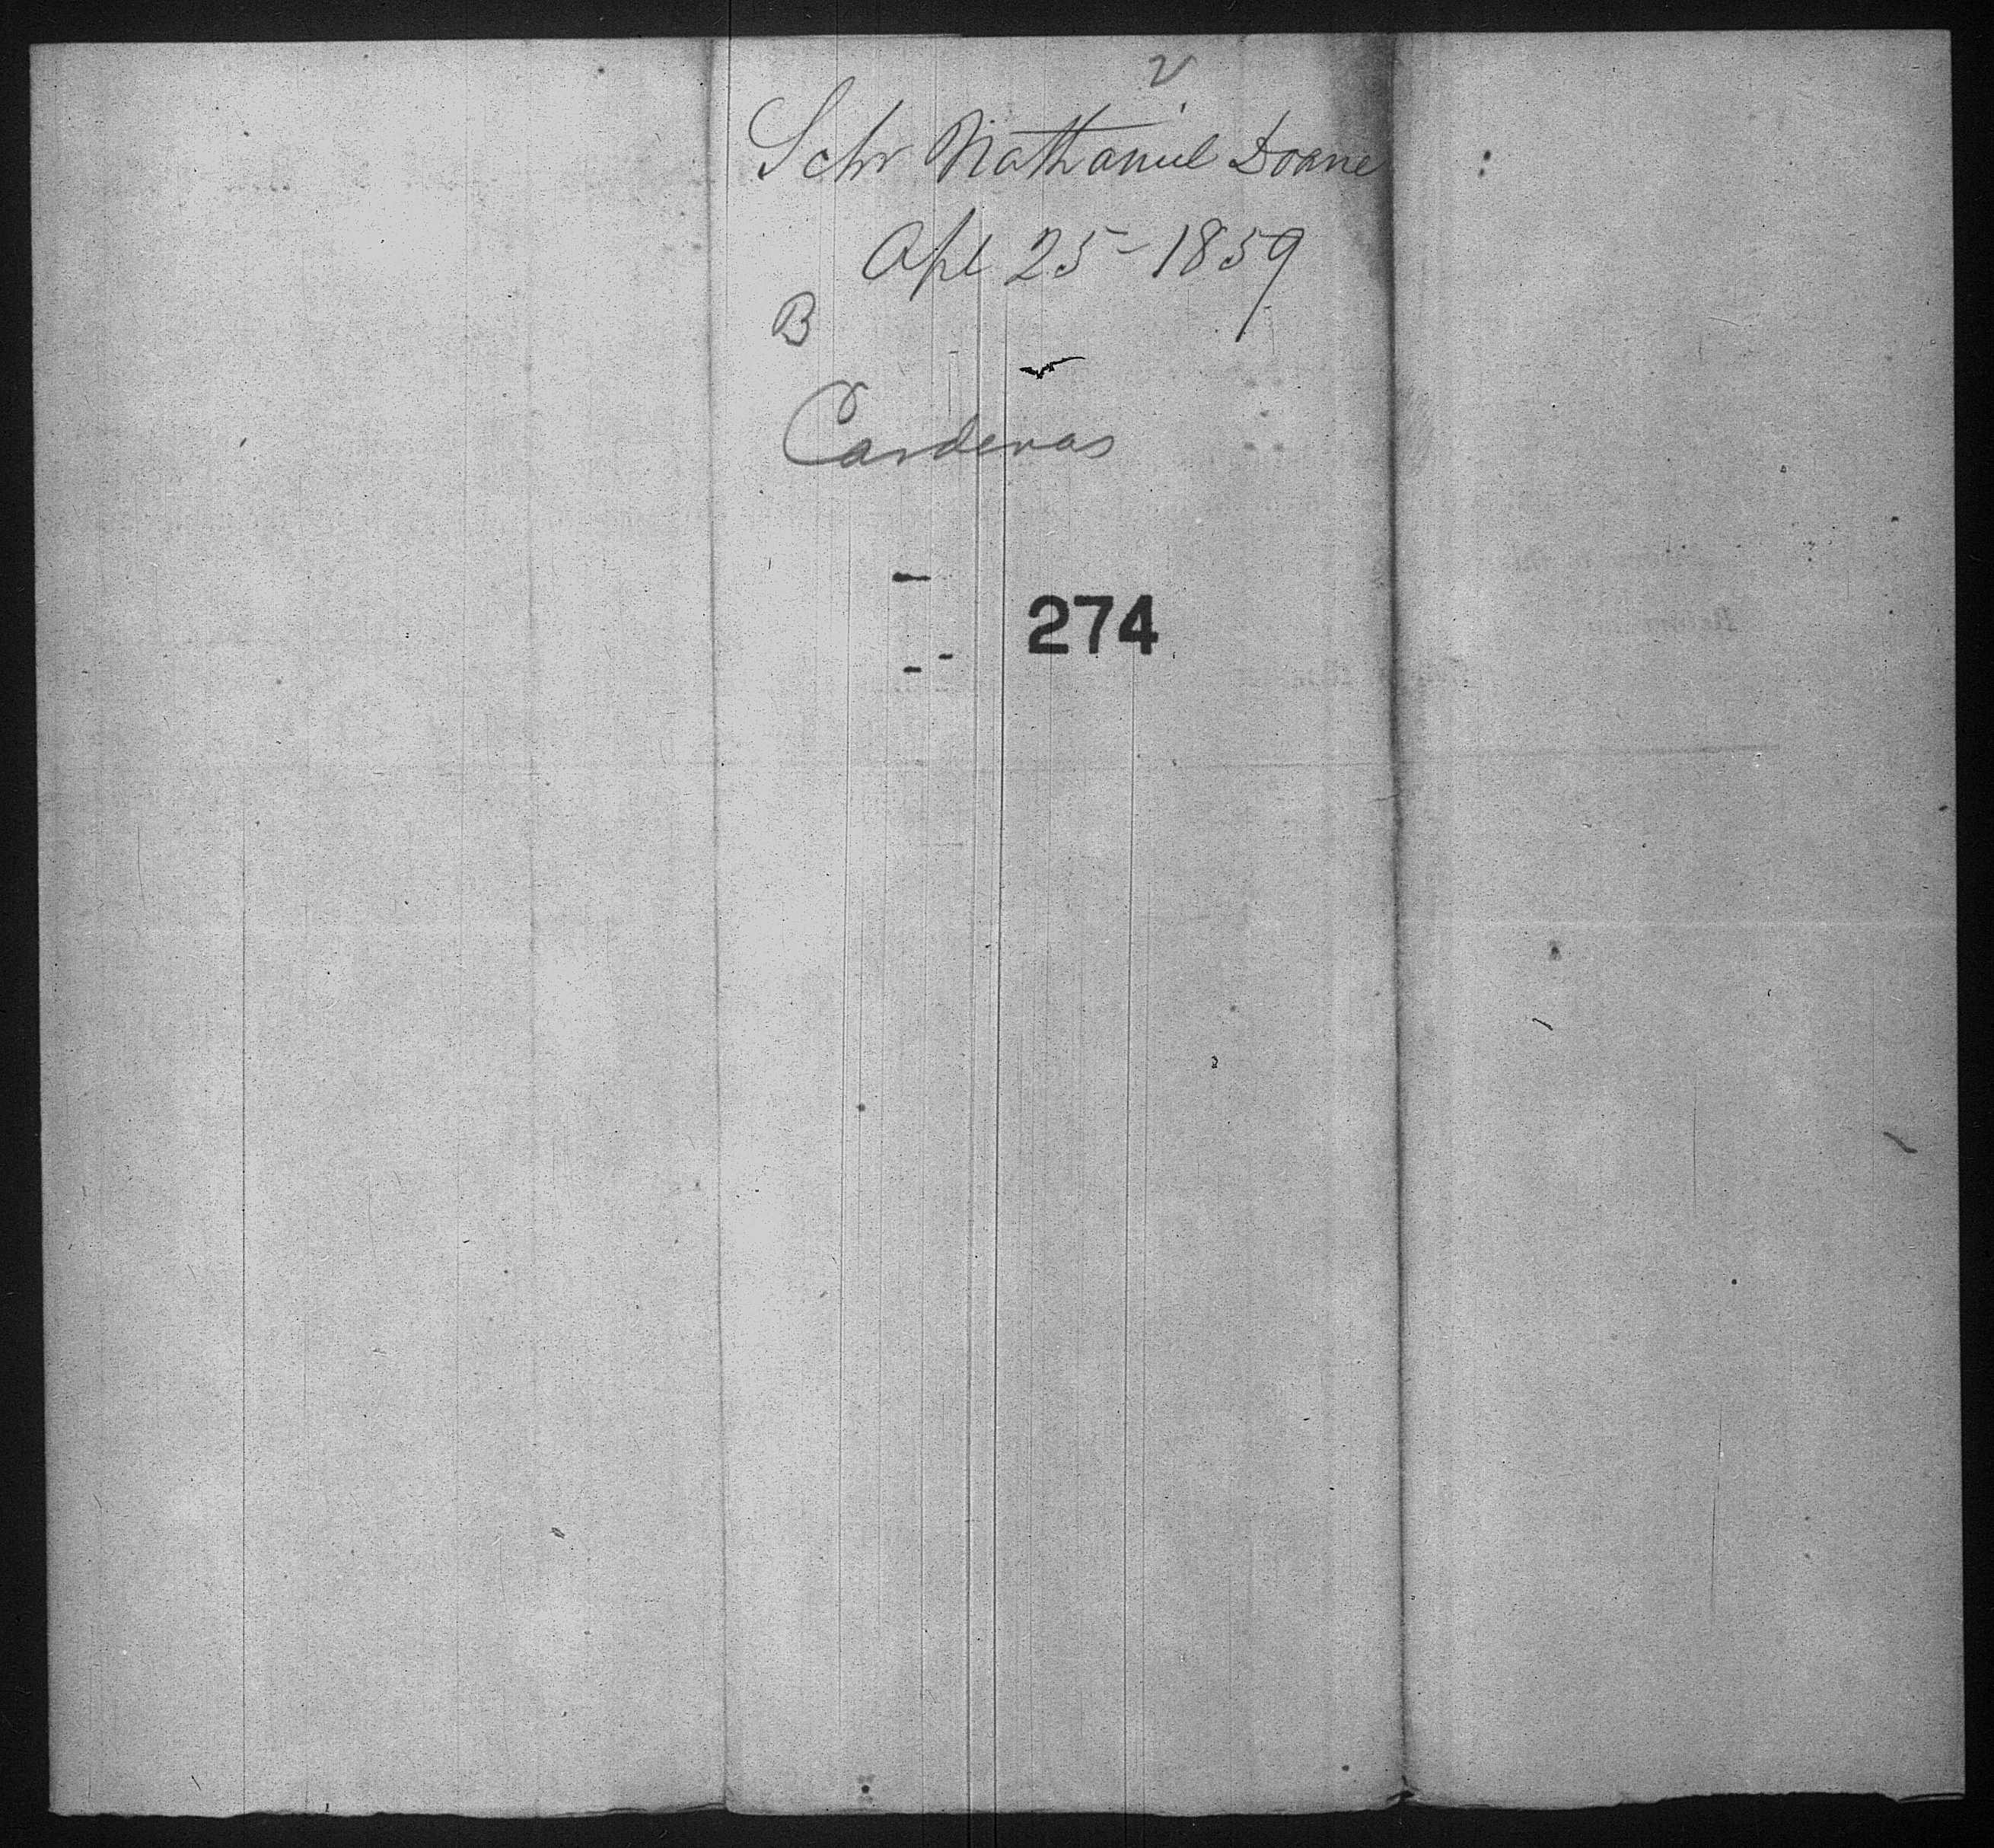 v
Schr Nathaniel Doane
Apl 25 - 1859
B
Cardenas
274